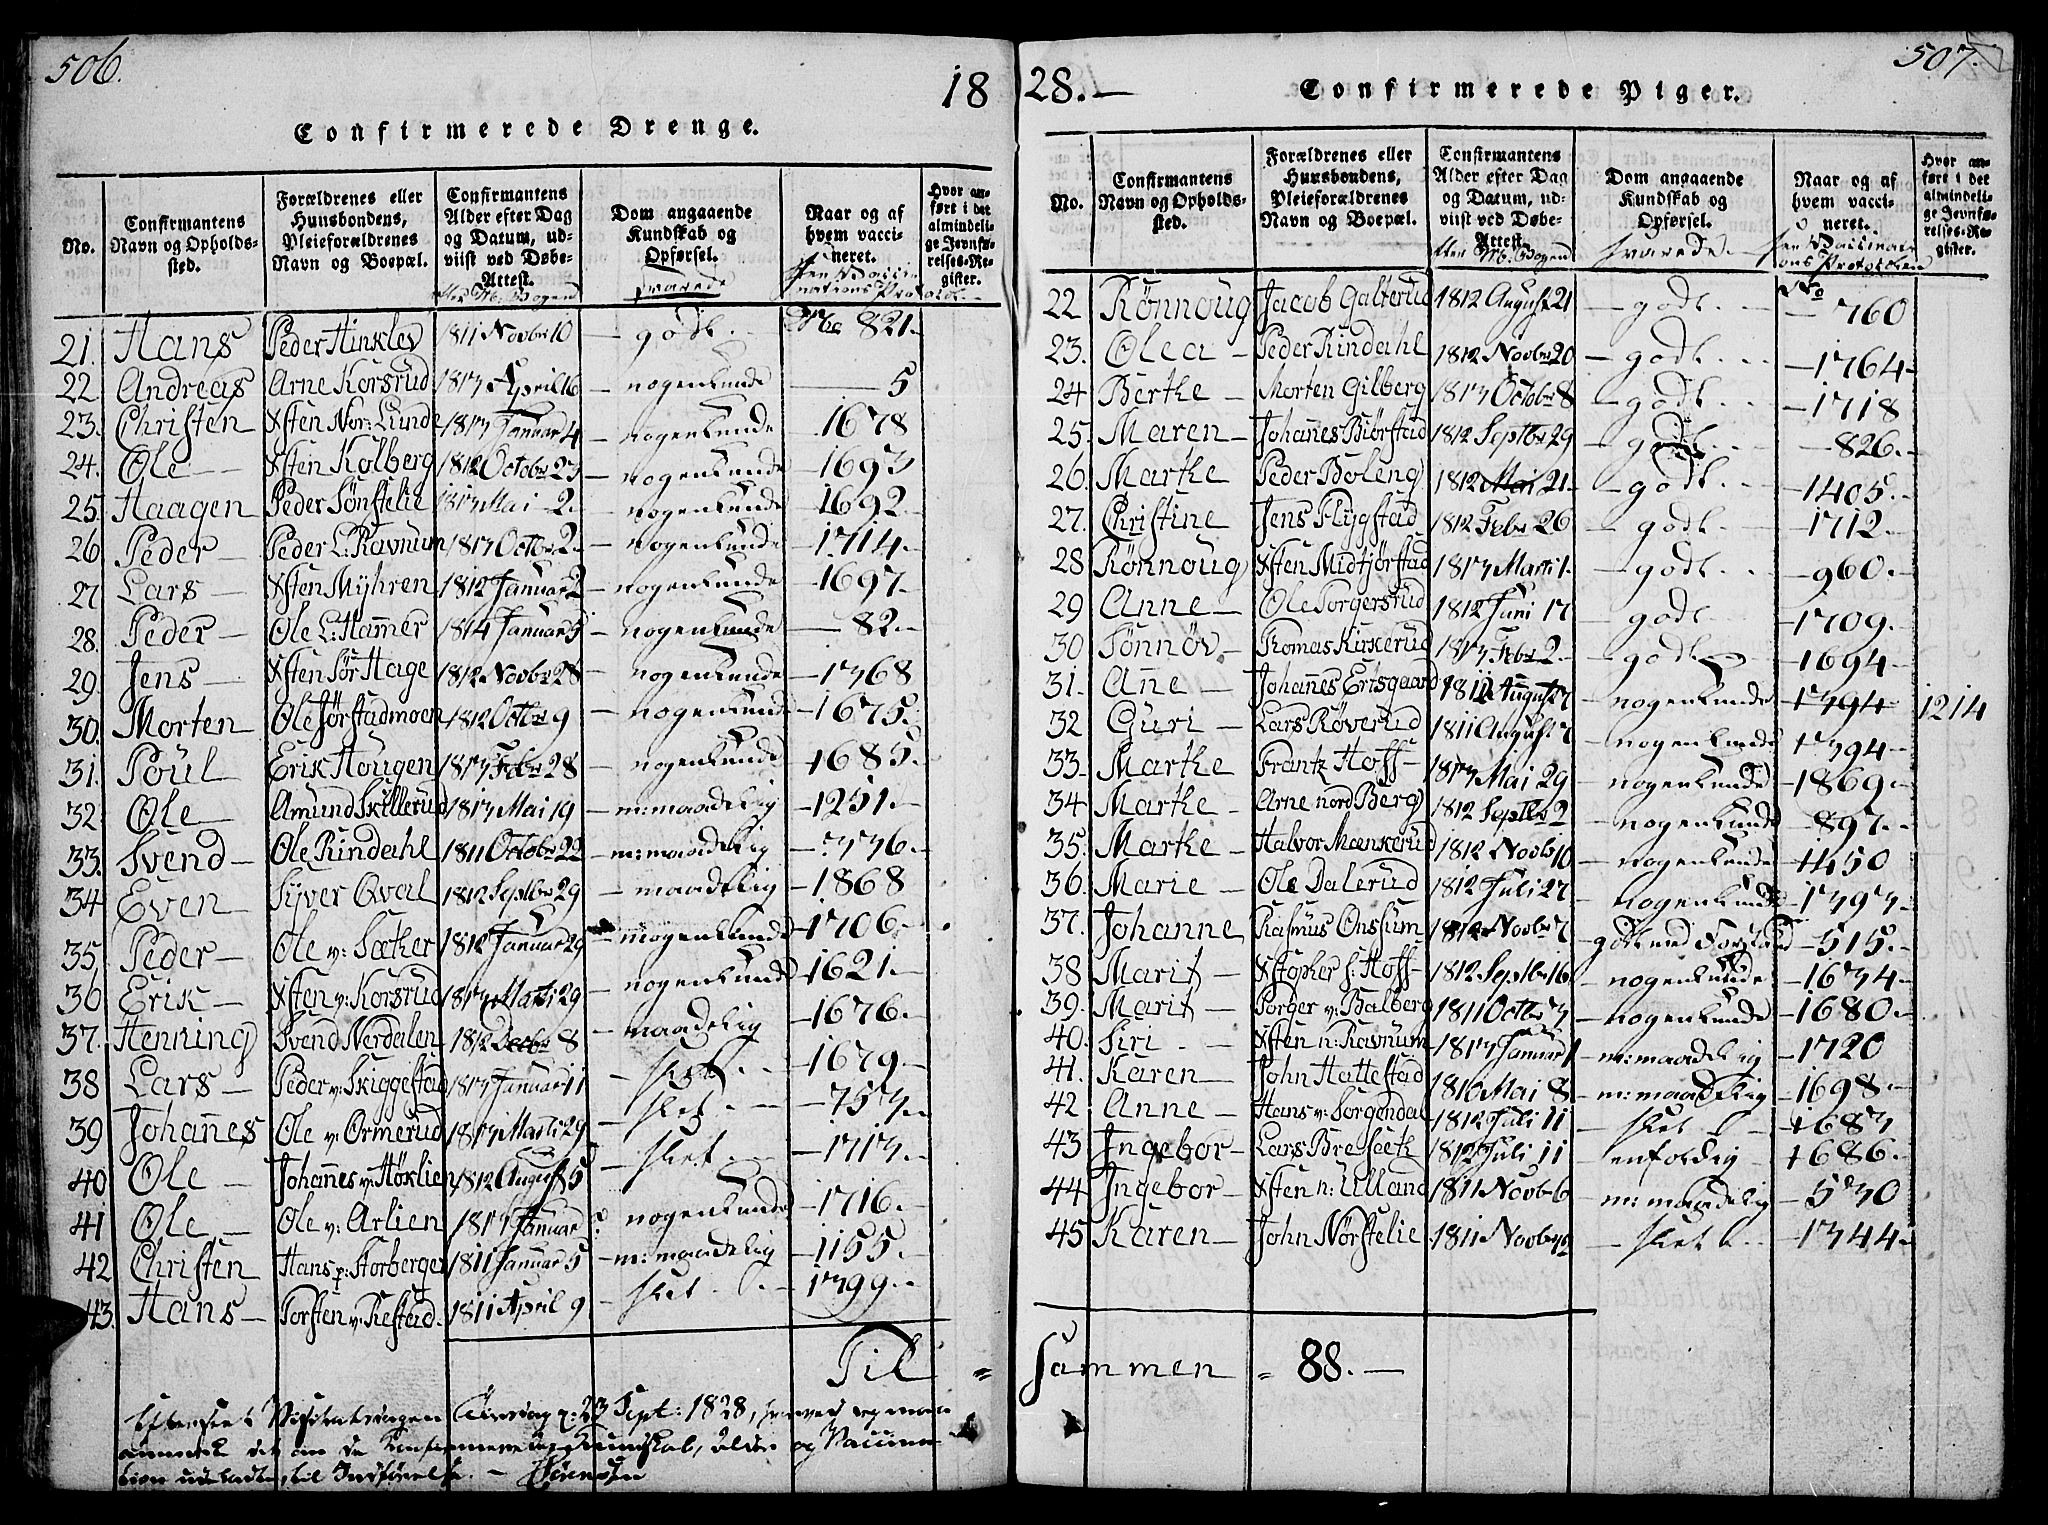 506.
18
Confirmerede Drenge.
No. | Confirmantens Navn og Opholdssted. | Forældrenes eller Huusbondens, Pleieforældrenes Navn og Boepæl. | Confirmantens Alder efter Dag og Datum, udviist ved Døbe-Attest. | Dom angaaende Kundskab og Opførsel. | Naar og af hvem vaccineret. | Hvor anført i det almindelige Jevnførelses-Register.
efter Mb: Bogen | svarede | sen Vaccinations Protocoll
21. Hans Peder Hinklev 1811 Novbr 10 – godt. No 821.
22 Andreas Arne Korsrud 1813 April 16 – nogenlunde — 5
23. Christen Xsten Nor: Lunde 1813 Januar 4 – nogenlunde – 1678
24. Ole – Xsten Kolberg 1812 Octobr 23 – nogenlunde – 1693
25. Haagen Peder Sønstelie 1813 Mai 2. – nogenlunde – 1692.
26 Peder – Peder L: Ravnum 1813 Octbr 2. – nogenlunde – 1714.
27 Lars – Xsten Myhren 1812 Januar 2 – nogenlunde – 1697.
28. Peder – Ole L: Hammer 1814 Januar 5 – nogenlunde – 82.
29. Jens – Xsten Sør Hage 1812 Novbr 28 – nogenlunde – 1368
30. Morten Ole Sørstadmoen 1812 Octbr 9 – nogenlunde – 1675.
31. Poul Erik Hougen 1813 Febr 28 – nogenlunde – 1685.
32. Ole – Amund Skillerud 1813 Mai 19 – m: maadelig – 1251.
33. Svend – Ole Rindahl 1811 Octobr 22 – m: maadelig – 1336.
34 Even – Syver Qval 1812 Septbr 29 – maadelig – 1868
35. Peder – Ole v: Sæther 1812 Januar 29 – nogenlunde – 1706.
36 Erik – Xsten v: Korsrud 1813 Marti 29 – nogenlunde – 1621.
37. Henning Svend Nerdalen 1812 Decbr 8 – maadelig – 1676.
38 Lars – Peder v: Skiggestad 1813 Januar 11 – slet. – 1679.
39 Johannes Ole v: Ormerud 1813 Marti 29 – slet. – 753.
40 Ole – Johannes v: Høklien 1812 August 5 – slet. – 1713.
41 Ole – Ole v: Arlien 1813 Januar – nogenlunde – 1716.
42 Christen Hans p: Storberget 1811 Januar 5 – m: maadelig – 1155.
43. Hans – Torsten v: Refstad. 1811 April 9 – slet. – 1399.
Til =
Efterseet Visitatsdagen Tirsdag d: 23 Sept: 1828,
anmærk det om de Confirmeredes Kundskab, Alder og Vaccina-
tion udeladte, til Indførelse. – Sørensen
507.
28. –
Confirmerede Piger.
No. | Confirmantens Navn og Opholdssted. | Forældrenes eller Huusbondens, Pleieforældrenes Navn og Boepæl. | Confirmantens Alder efter Dag og Datum, udviist ved Døbe-Attest. | Dom angaaende Kundskab og Opførsel. | Naar og af hvem vaccineret. | Hvor anført i det almindelige Jevnførelses-Register.
efter Mb. Bogen | svarede | sen Vaccinations Protocollen
22 Rønnoug Jacob Galterud 1812 August 21 – godt – No 760
23. Olea – Peder Rindahl 1812 Novbr 20 – godt. – 1764
24 Berthe – Morten Gilberg 1813 Octobr 8 – godt. – 1718
25. Maren – Johannes Biørstad 1812 Septbr 29 – godt. – 826.
26. Marthe Peder Boleng 1812 Mai 21 – godt. – 1405.
27. Christine Jens Flygstad 1812 Febr 26 – godt. – 1712.
28 Rønnoug Xsten Midtjørstad 1813 Marti 1. – godt. – 960.
29 Anne – Ole Torgersrud 1812 Juni 17 – godt. – 1709.
30 Sønnøv – Thomas Kirkerud 1813 Febr 2. – godt. – 1694
31. Ane – Johannes Ertsgaard 1811 August 7 – nogenlunde – 1394 1214
32 Guri – Lars Røverud 1811 August 7 – nogenlunde – 1394
33. Marthe Frantz Hoff – 1813 Mai 29 – nogenlunde – 1869.
34 Marthe – Arne nord Berg 1812 Septbr 2 – nogenlunde – 897.
35. Marthe – Halvor Mænkerud 1812 Novbr 10 – nogenlunde – 1450
36. Marie – Ole Dalerud 1812 Juli 27 – nogenlunde – 1393.
37. Johanne Rasmus Onssum 1812 Novbr 7 – godt med Forstand – 515.
38 Marit – Xstopher s: Hoff – 1812 Septbr 16 – nogenlunde – 1634
39. Marit – Torger v: Balberg 1811 Octbr 3 – nogenlunde – 1680.
40. Siri – Xsten n: Ravnum 1813 Januar 1 – m: maadelig – 1720
41. Karen – John Hattestad 1810 Mai 8 – m: maadelig – 1698.
42 Anne – Hans v: Sorgendal 1812 Juli 11 – slet. – 1683
43 Ingebor – Lars Breseth 1812 Juli 11 – enfoldig – 1686.
44 Ingebor – Xsten n: Ulland 1811 Novbr 6 – m: maadelig – 530
45 Karen – John Nørstelie 1811 Novbr – slet. – 1344.
Sammen = 88. –